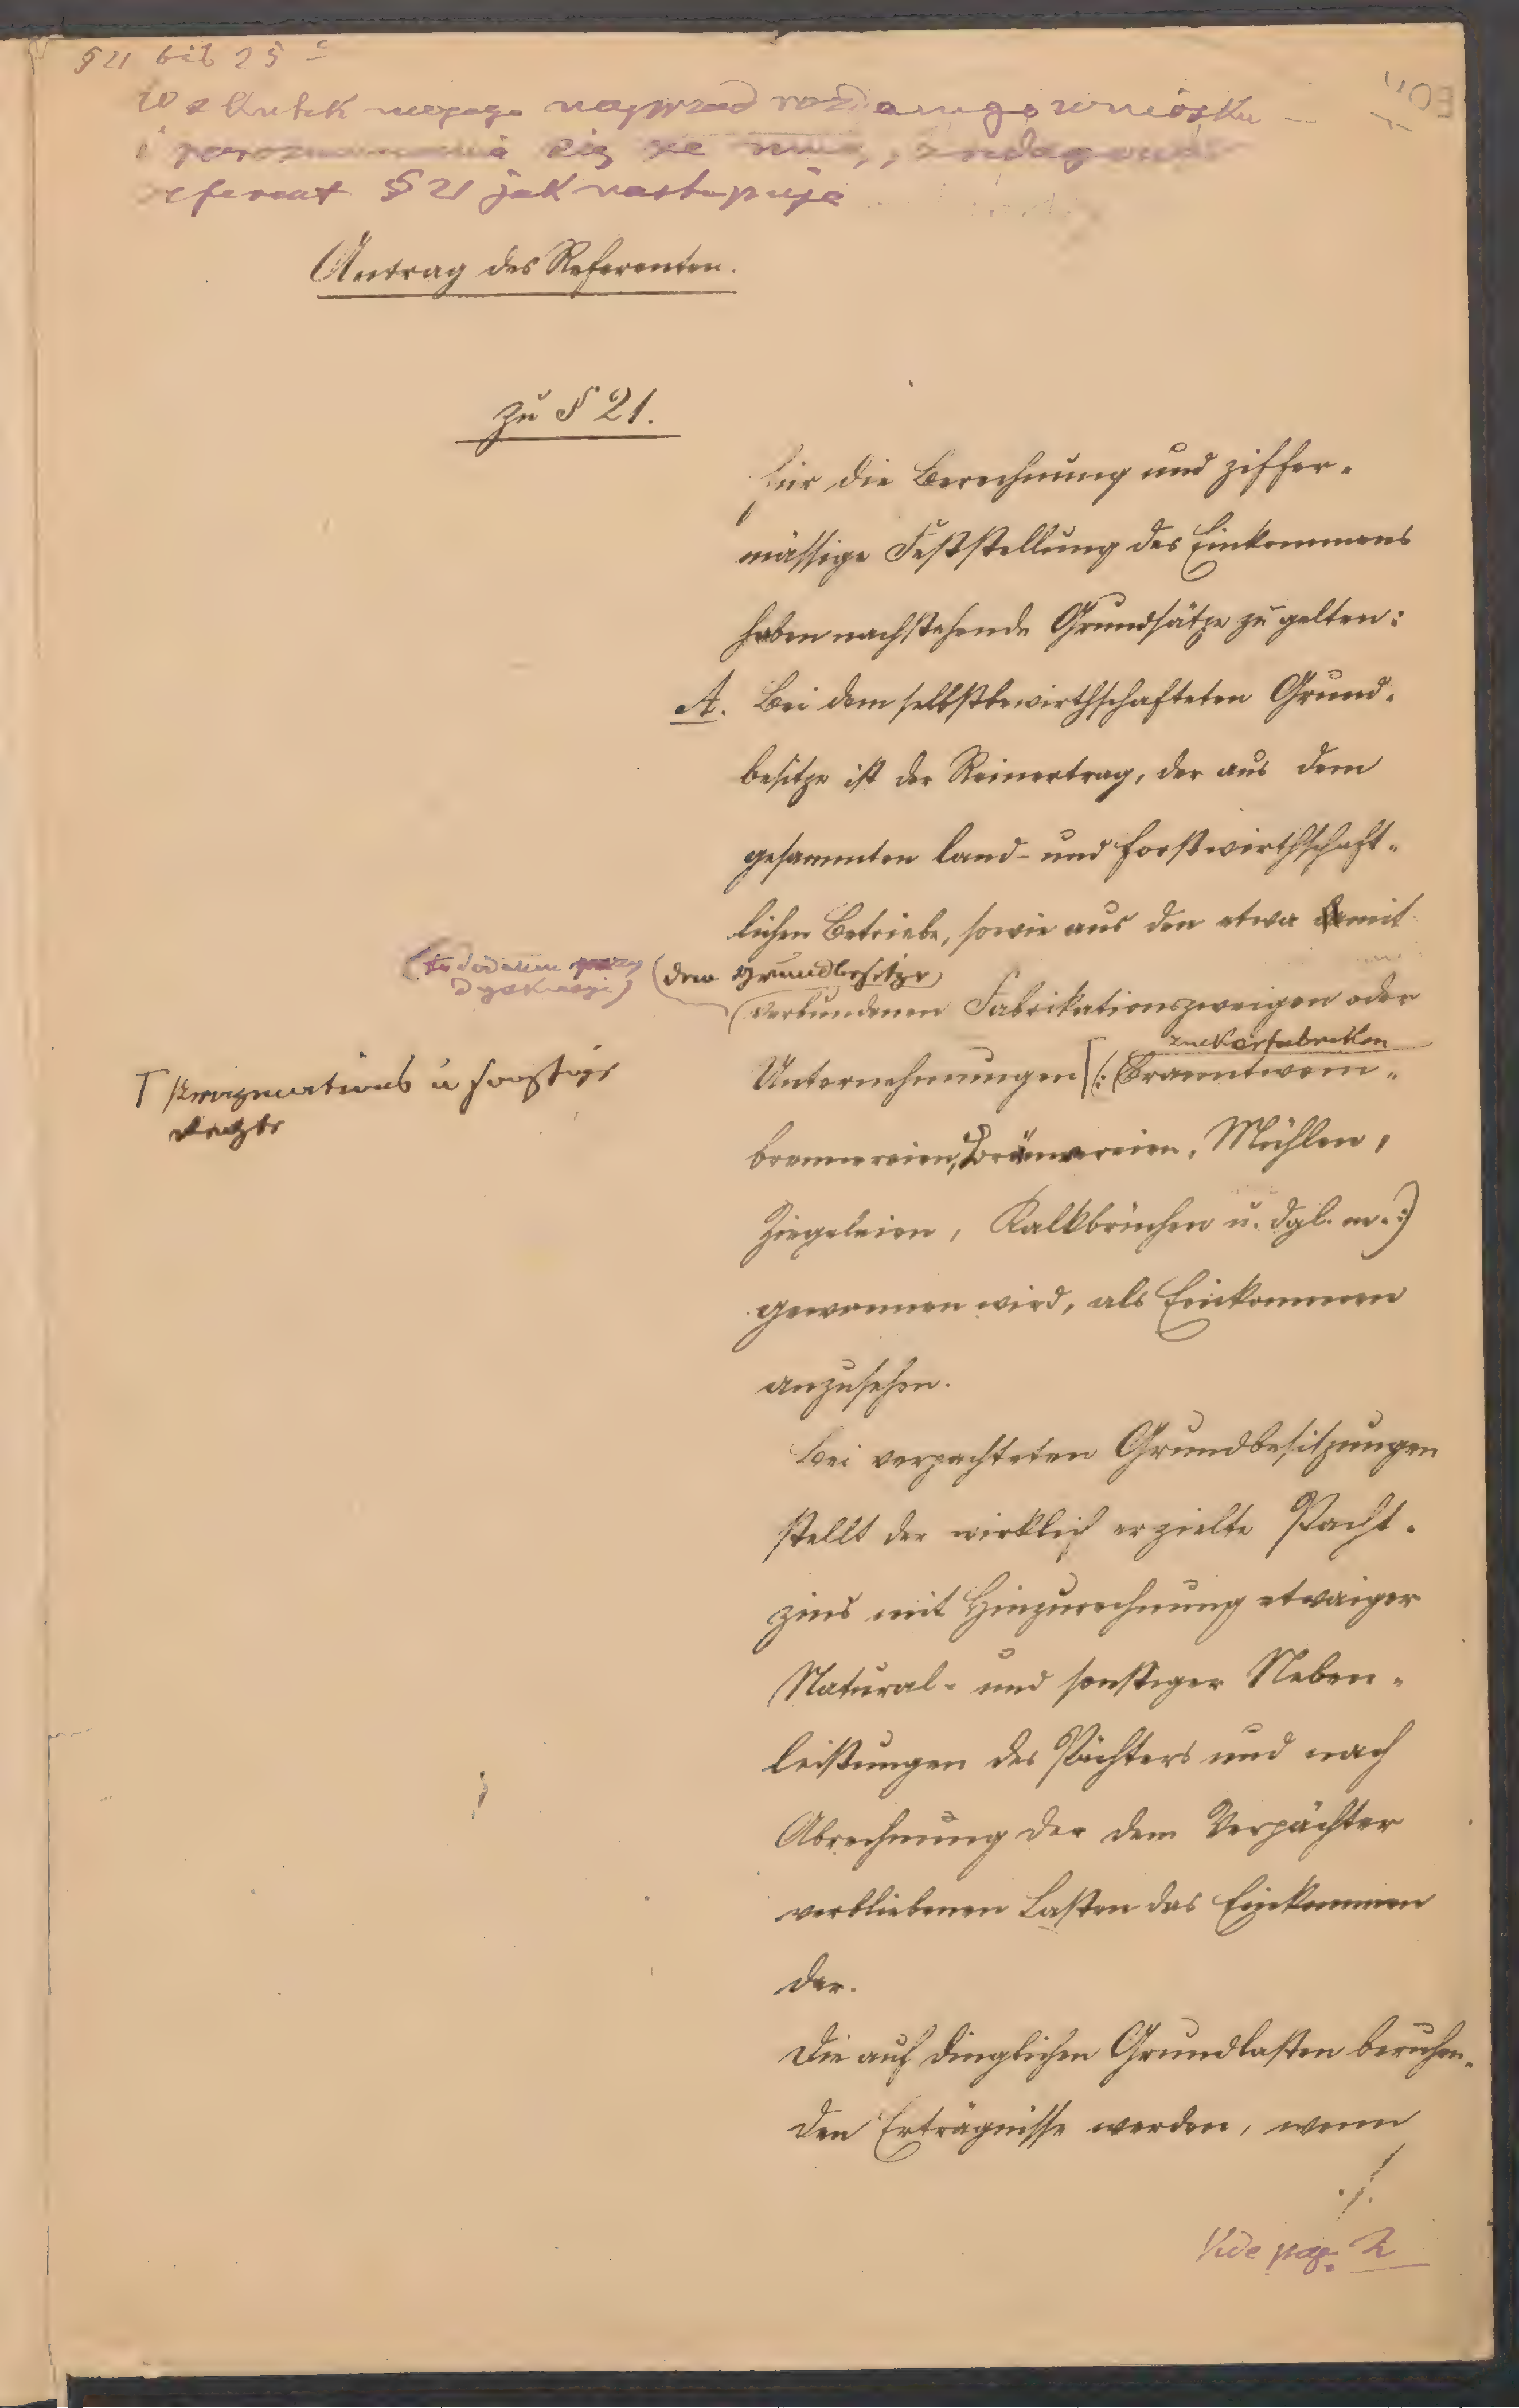 § 21 bis 25 c
Wskutek mojego naprzód rozdanego wniosku
i porozumienia się ze mną,
referent § 21 jak następuje
Antrag des Referenten.
zu § 21.
Für die Berechnung und ziffer-
mässige Feststellung des Einkommens
haben nachstehende Grundsätze zu gelten:
A. Bei dem selbstbewirthschafteten Grund-
besitze ist der Reinertrag, der aus dem
gesammten land- und forstwirthschaft-
lichen Betriebe, sowie aus den etwa damit
(to dodałem przy
dyskusji)
(dem Grundbesitze)
verbundenen Fabrikationszweigen oder
Zuckerfabriken
Unternehmungen [(: Branntwein-
brennereien, Bräuereien, Mühlen,
Ziegeleien, Kalkbrüchen u. dgl. m. :)
Γ Propinations u sonstige
Rechte
gewonnen wird, als Einkommen
anzusehen.
Bei verpachteten Grundbesitzungen
stellt der wirklich erzielte Pacht-
zins mit Hinzurechnung etwaiger
Natural- und sonstiger Neben-
leistungen des Pächters und nach
Abrechnung der dem Verpächter
verbliebenen Lasten das Einkommen
dar.
Die auf dinglichen Grundlasten beruhen-
den Erträgnisse werden, wenn
./.
Vide pag. 2